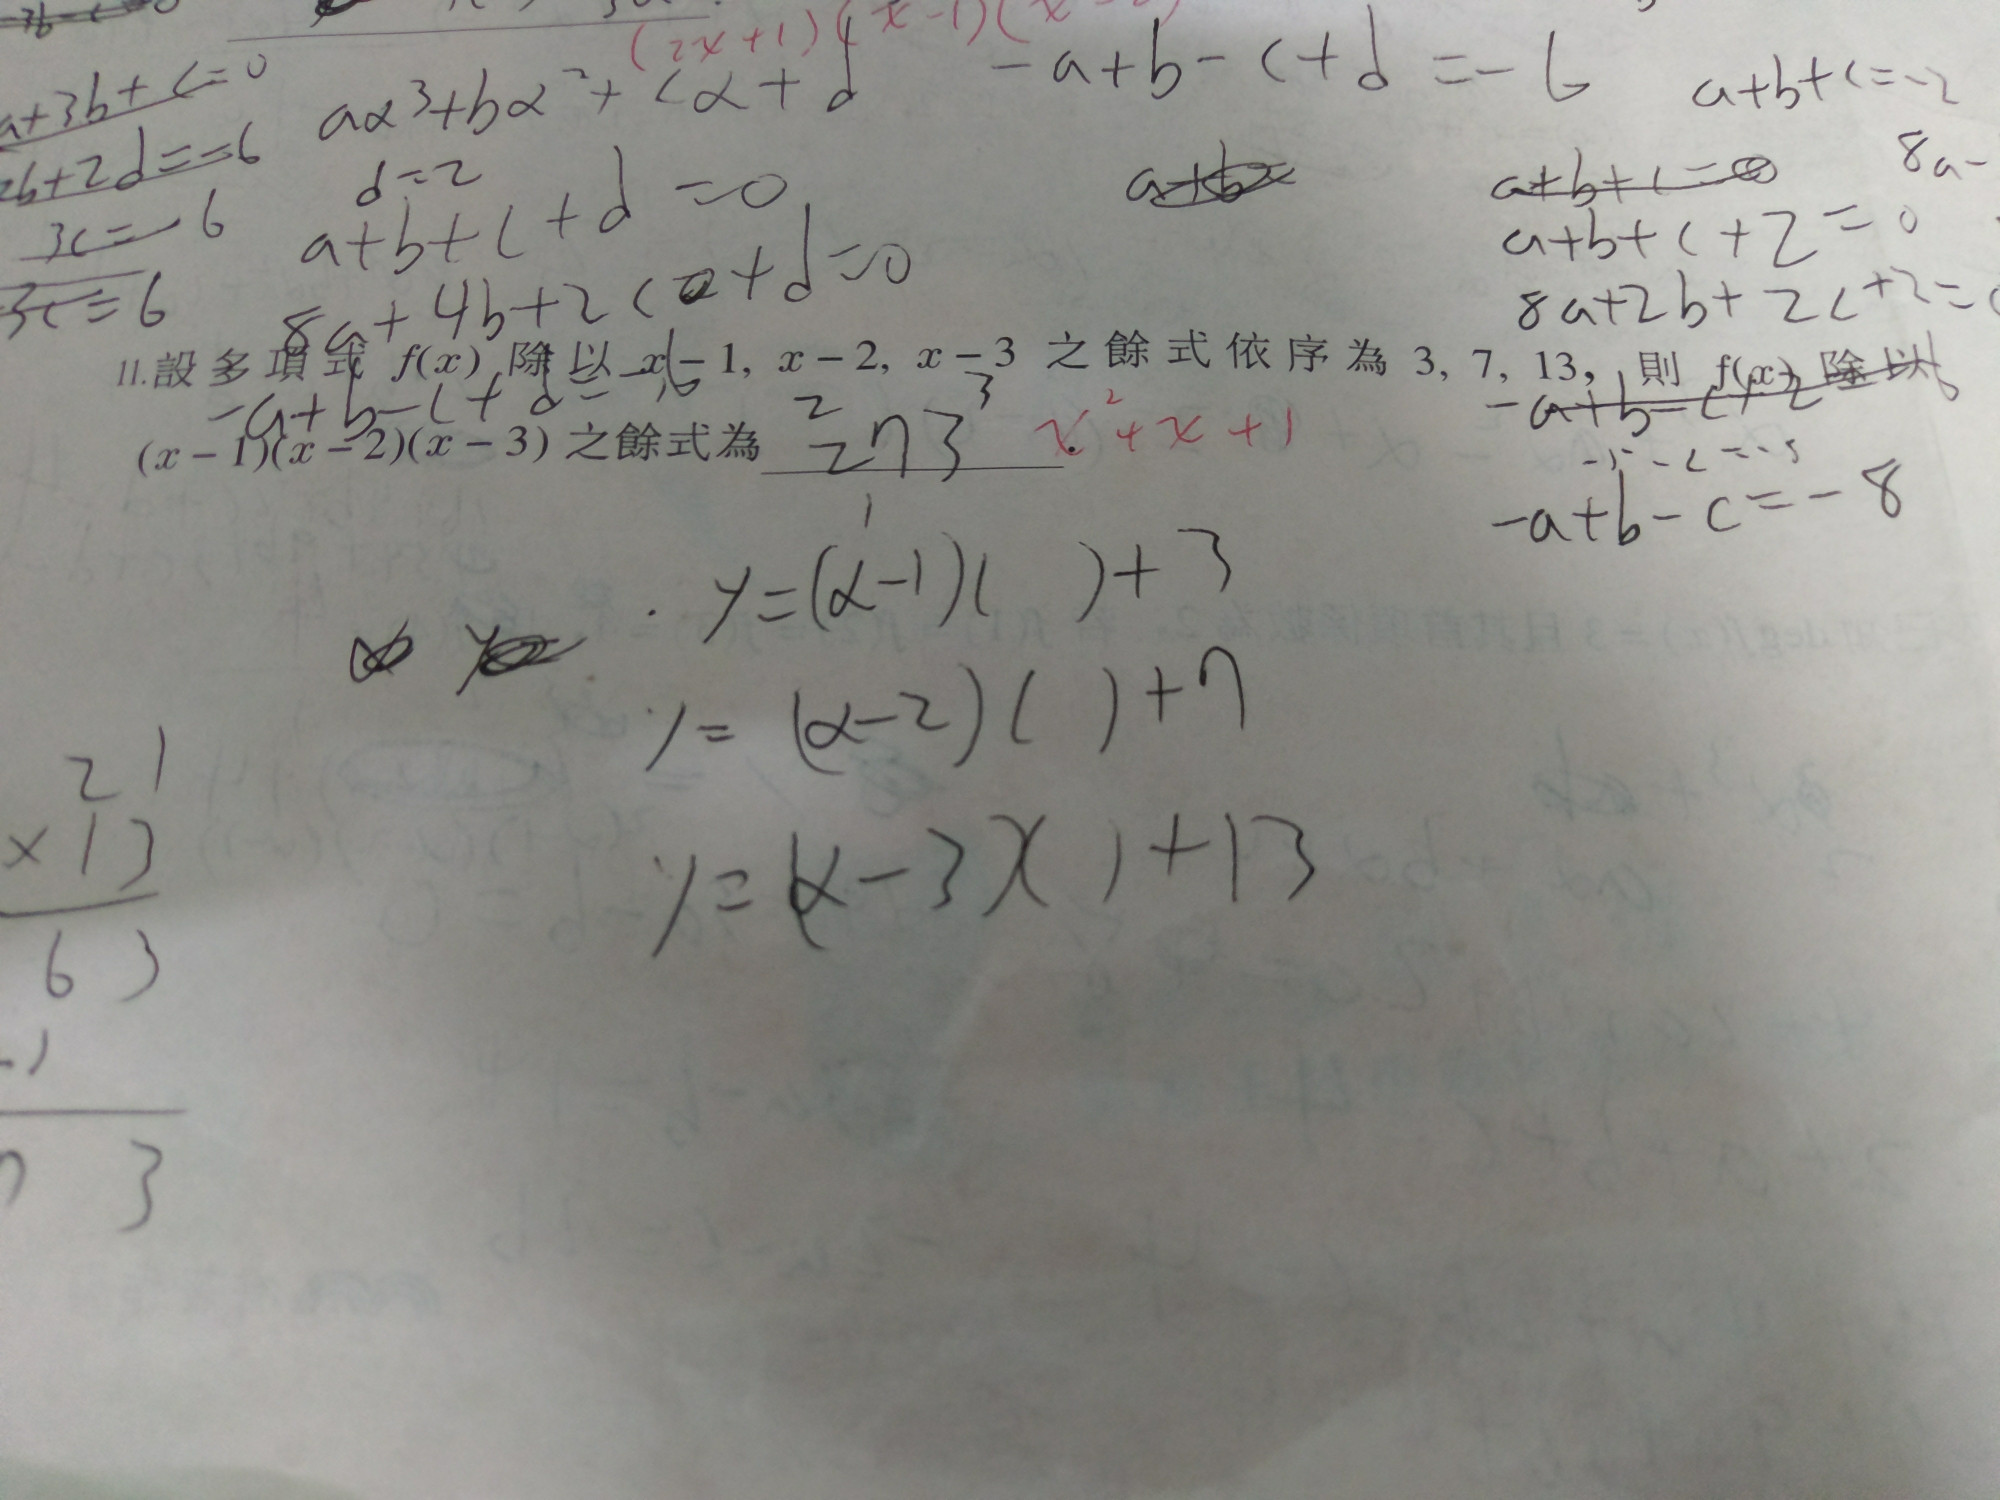 (2x+1)(x-1)(x-2)
a+3b+c=0
2b+2d=-6
3c=-6
3c=6
aα³+bα²+cα+d
d=2
a+b+c+d=0
8a+4b+2c+d=0
-a+b-c+d=-6
-a+b-c+d=-6
a+b+c=-2
8a-
a+b+c=0
a+b+c+2=0
8a+2b+2c+2=0
11.設多項式 f(x) 除以 x-1, x-2, x-3 之餘式依序為 3, 7, 13, 則 f(x) 除以
(x-1)(x-2)(x-3) 之餘式為 273 x²+x+1
-a+b-c=-8
y=(α-1)( )+3
y=(α-2)( )+7
y=(α-3)( )+13
21
×13
63
3